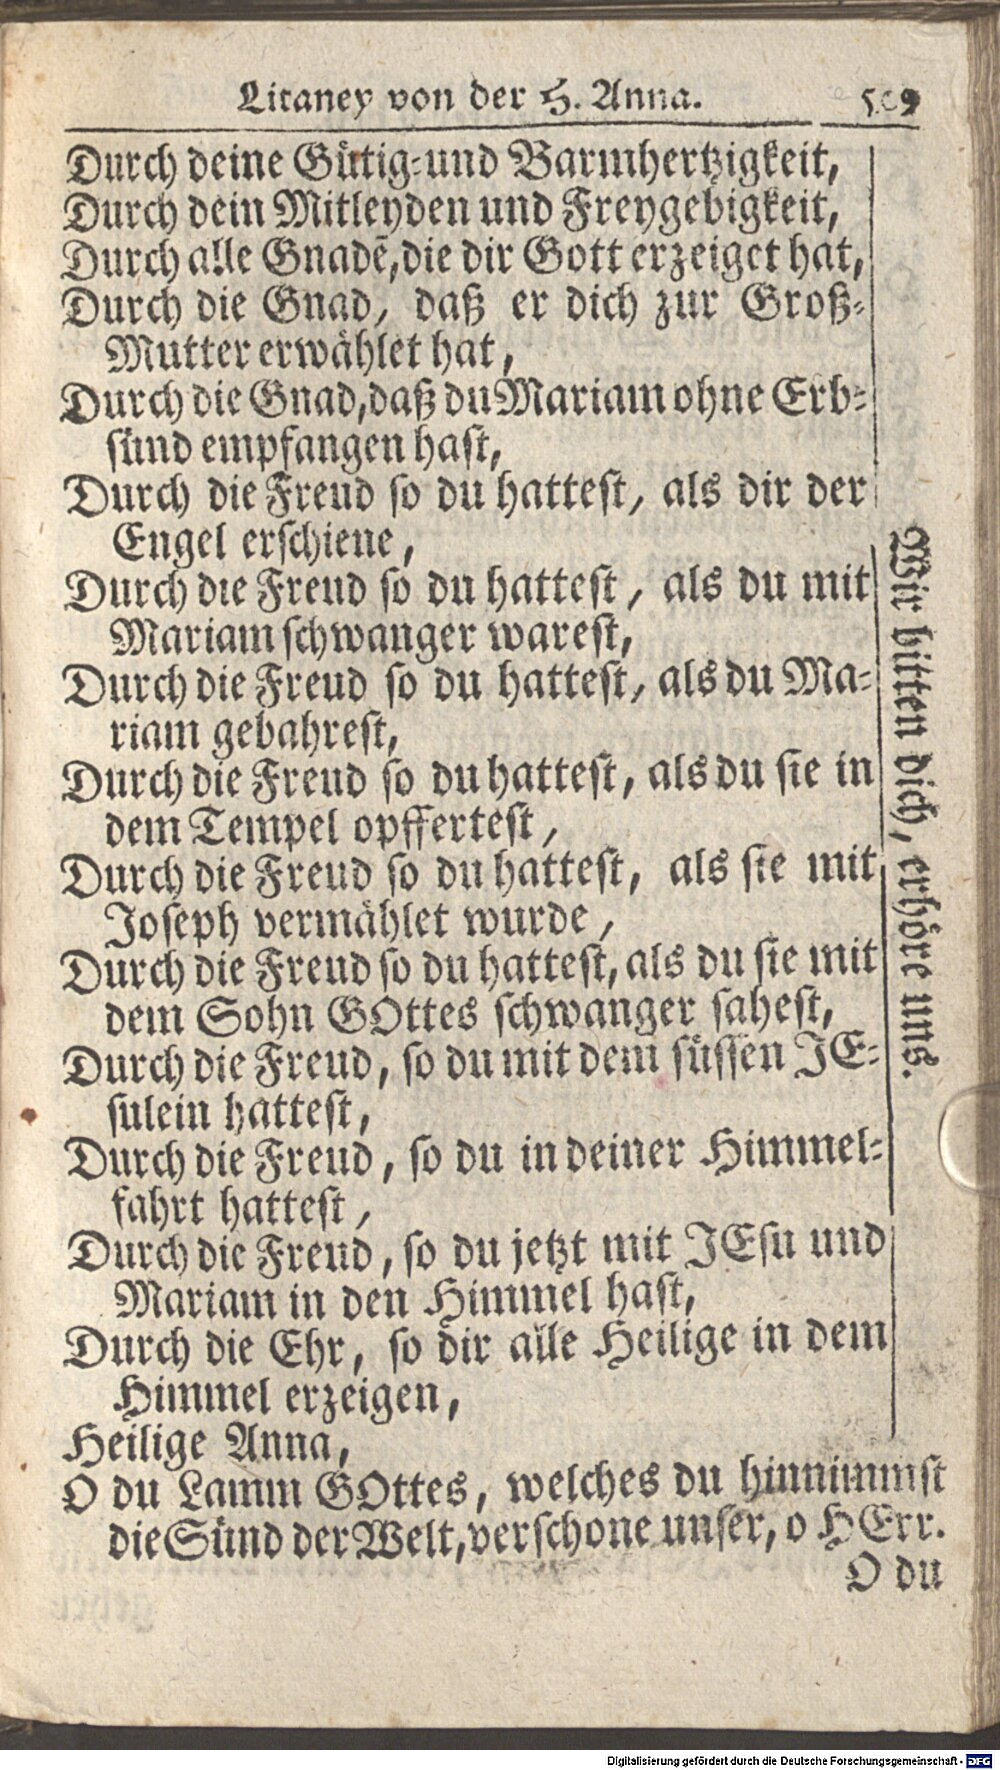 Litaney von der H. Anna. 509
Durch deine Gütig-und Barmhertzigkeit,
Durch dein Mitleyden und Freygebigkeit,
Durch alle Gnadē, die dir Gott erzeiget hat,
Durch die Gnad, daß er dich zur Groß-
Mutter erwählet hat,
Durch die Gnad, daß du Mariam ohne Erb-
sünd empfangen hast,
Durch die Freud so du hattest, als dir der
Engel erschiene,
Durch die Freud so du hattest, als du mit
Mariam schwanger warest,
Durch die Freud so du hattest, als du Ma-
riam gebahrest,
Durch die Freud so du hattest, als du sie in
dem Tempel opffertest,
Durch die Freud so du hattest, als sie mit
Joseph vermählet wurde,
Durch die Freud so du hattest, als du sie mit
dem Sohn GOttes schwanger sahest,
Durch die Freud, so du mit dem süssen JE-
sulein hattest,
Durch die Freud, so du in deiner Himmel-
fahrt hattest,
Durch die Freud, so du jetzt mit JEsu und
Mariam in den Himmel hast,
Durch die Ehr, so dir alle Heilige in dem
Himmel erzeigen,
Heilige Anna,
Wir bitten dich, erhöre uns.
O du Lamm GOttes, welches du hinnimmst
die Sünd der Welt, verschone unser, o HErr.
O du
Digitalisierung gefördert durch die Deutsche Forschungsgemeinschaft - DFG